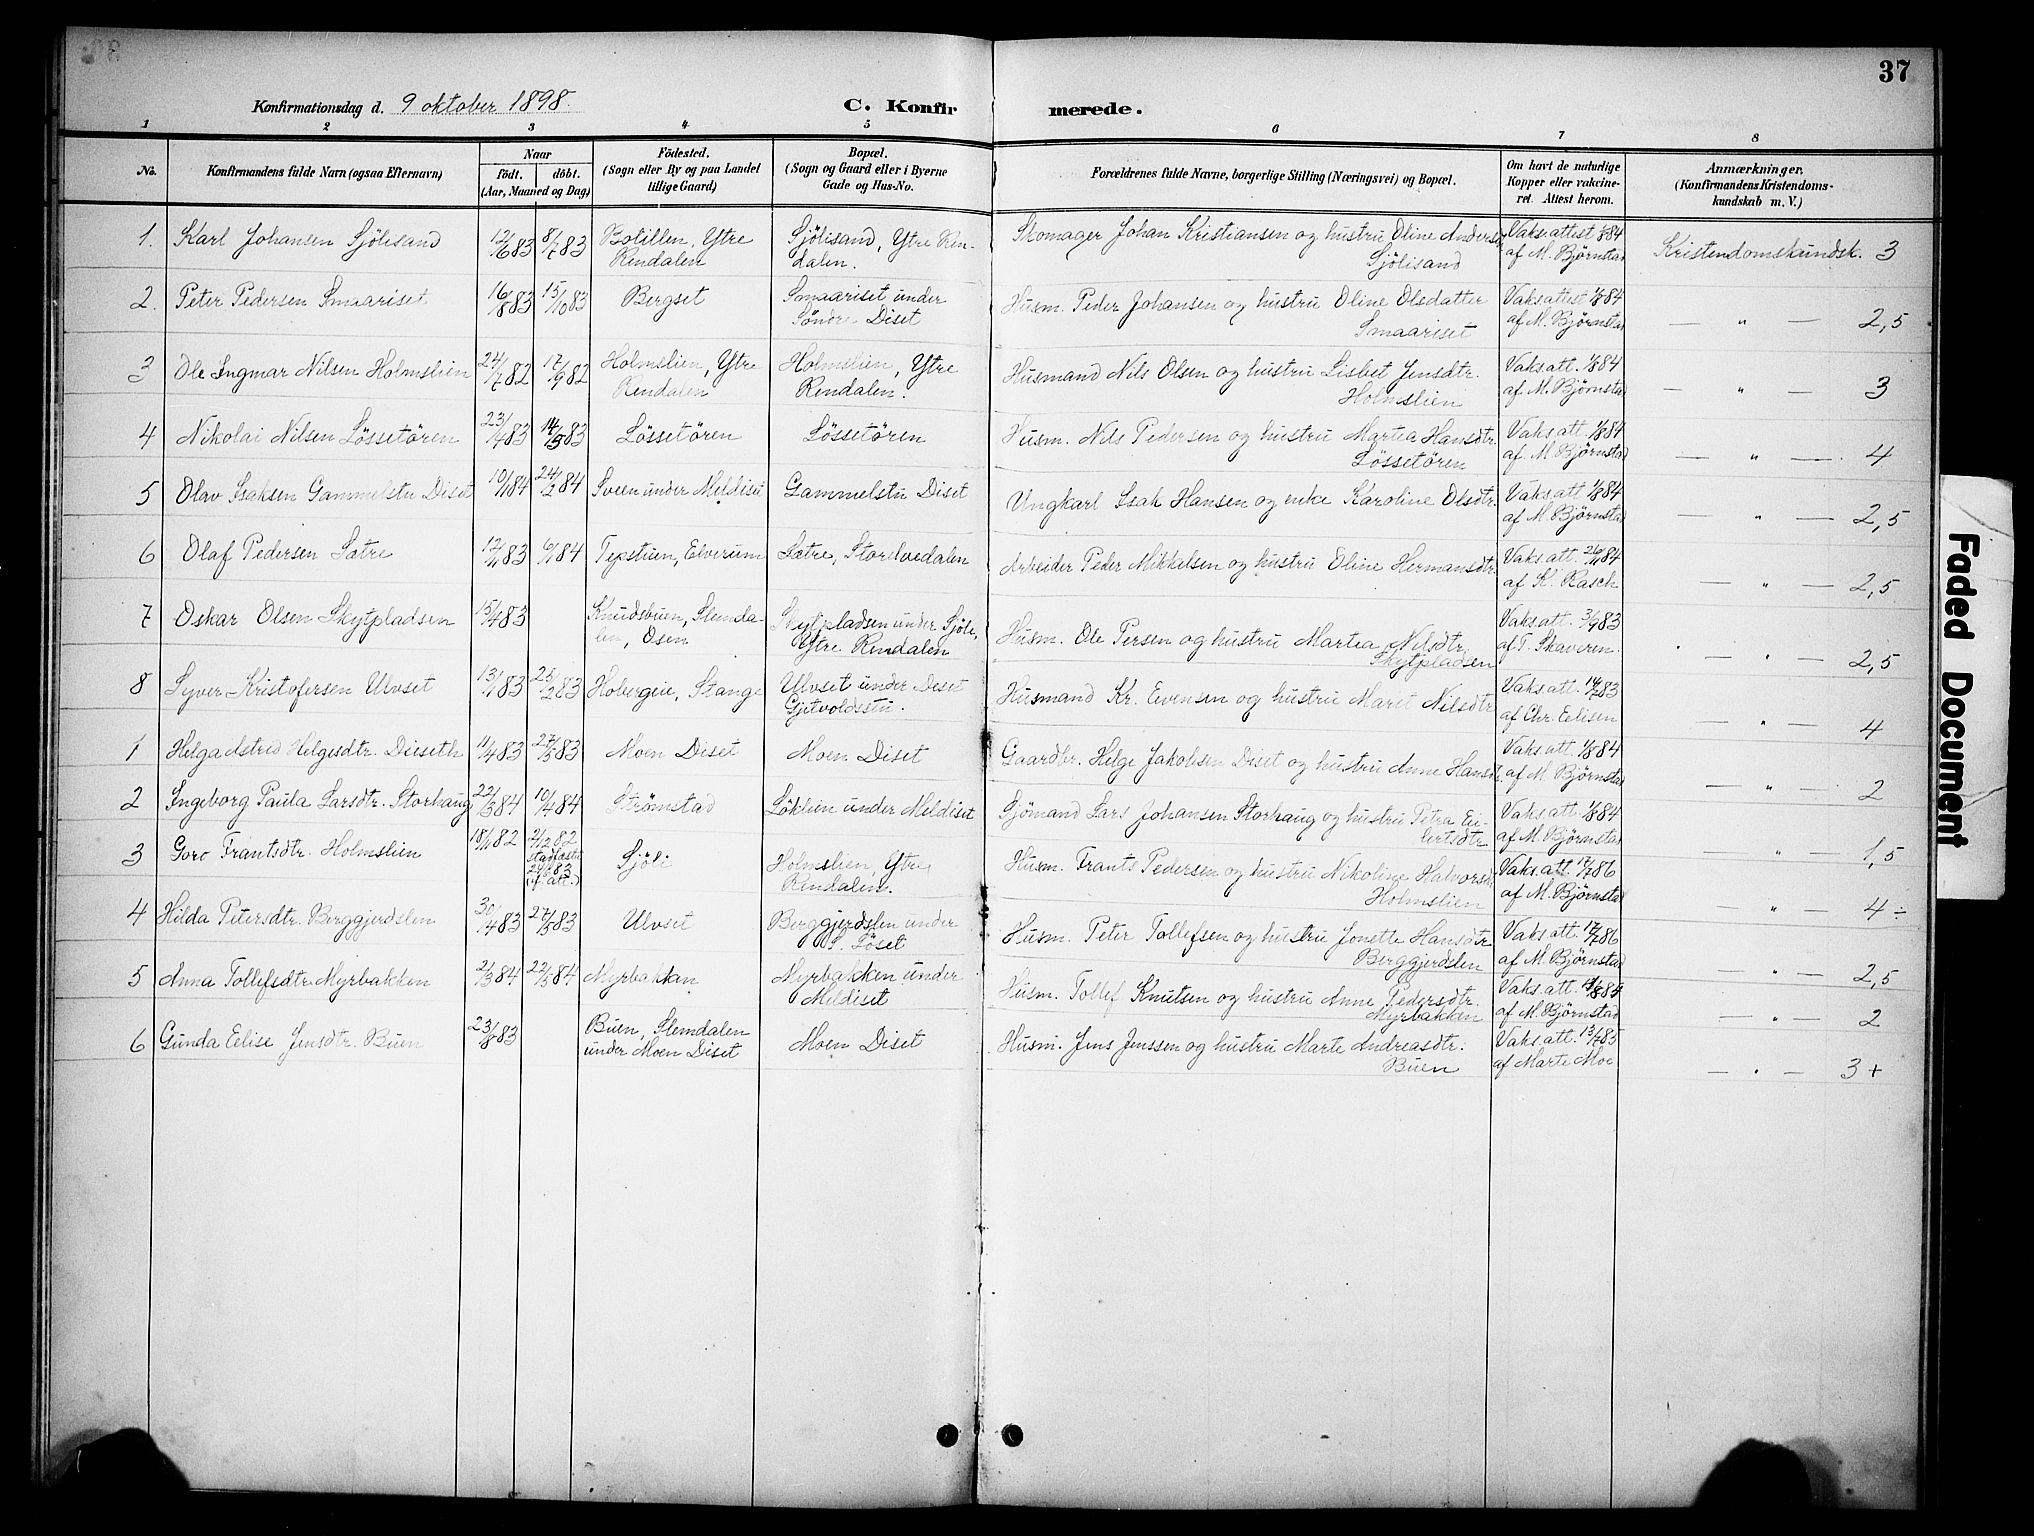 37
Konfirmationsdag d. 9 oktober 1898.
C. Konfirmerede.
1 2 3 4 5 6 7 8
No.
Konfirmandens fulde Navn (ogsaa Efternavn)
Naar
födt. döbt.
(Aar, Maaned og Dag)
Födested.
(Sogn eller By og paa Landet
tillige Gaard)
Bopæl.
(Sogn og Gaard eller i Byerne
Gade og Hus-No.
Forældrenes fulde Navne, borgerlige Stilling (Næringsvei) og Bopæl.
Om havt de naturlige
Kopper eller vakcine-
ret. Attest herom.
Anmærkninger.
(Konfirmandens Kristendoms-
kundskab m. V.)
1. Karl Johansen Sjölisand 12/6 83 8/7 83 Botillen, Ytre Sjölisand, Ytre Ren- Skomager Johan Kristiansen og hustru Oline Andersd. Vaks.attest 1/8 84
Rendalen dalen. Sjölisand af M. Björnstad Kristendomskundsk. 3
2. Peter Pedersen Smaariset 16/8 83 15/10 83 Bergset Smaariset under Husm. Peder Johansen og hustru Oline Olsdatter Vaksattest 1/8 84
Söndre Diset Smaariset af M. Björnstad — " — 2,5
3 Ole Ingmar Nilsen Holmslien 24/7 82 17/9 82 Holmslien, Ytre Holmslien, Ytre Husmand Nils Olsen og hustru Lisbet Jensdtr. Vaks.att. 1/8 84
Rendalen Rendalen. Holmslien af M. Björnstad — " — 3
4 Nikolai Nilsen Lössetören 23/4 83 14/5 83 Lössetören Lössetören Husm. Nils Pedersen og hustru Martea Hansdtr. Vaks.att. 1/8 84
Lössetören af M. Björnstad — " — 4
5 Olav Isaksen Gammelstu Diset 10/1 84 24/2 84 Sveen under Meldiset Gammelstu Diset Ungkarl Isak Hansen og enke Karoline Olsdtr. Vaks.att 1/8 84
af M. Björnstad — " — 2,5
6 Olaf Pedersen Sætre 12/11 83 6/1 84 Tepstuen, Elverum Sætre, Storelvedalen Arbeider Peder Mikkelsen og hustru Oline Hermansdtr. Vaks.att. 26/9 84
af K. Rasch — " — 2,5
7 Oskar Olsen Skytpladsen 15/4 83 Knudsbuen, Slemda- Skytpladsen under Sjöli, Husm. Ole Persen og hustru Martea Nilsdtr. Vaks.att. 3/9 83
len, Osen Ytre Rendalen Skytpladsen af T. Skaveren — " — 2,5
8 Syver Kristofersen Ulvset 13/1 83 25/2 83 Hobergeie, Stange Ulvset under Diset Husmand Kr. Evensen og hustru Marit Nilsdtr. Vaks.att. 14/7 83
Gjetvoldsstu. af Chr. Eelisen — " — 4
1 Helga Astrid Helgesdtr. Dieseth 11/4 83 27/5 83 Moen Diset Moen Diset Gaardbr. Helge Jakobsen Diset og hustru Anne Hansdtr. Vaks.att. 1/8 84
af M. Björnstad — " — 2
2 Ingeborg Paula Larsdtr. Storhaug 22/3 84 10/4 84 Strömstad Löklien under Meldiset Sjömand Lars Johansen Storhaug og hustru Petra Ei- Vaks.att 1/8 84
lertsdtr af M. Björnstad — " — 1,5
3 Goro Frantsdtr. Holmslien 18/11 82 2/12 82 Sjöli Holmslien, Ytre Husm. Frants Pedersen og hustru Nikoline Halvorsd. Vaks.att. 17/7 86
stadfæstet 24/6 83 Rendalen. Holmslien af M. Björnstad — " — 4÷
(f. att.)
4 Hilda Petersdtr. Berggjerdslen 30/4 83 27/5 83 Ulvset Berggjerdslen under Husm. Peter Tollefsen og hustru Jonette Hansdtr Vaks.att. 17/7 86
S. Löset Berggjerdslen af M. Björnstad — " — 2,5
5 Anna Tollefsdtr. Myrbakken 2/3 84 22/5 84 Myrbakken Myrbakken under Husm. Tollef Knutsen og hustru Anne Pedersdtr. Vaks.att. 1/8 84
Meldiset Myrbakken af M. Björnstad — " — 2
6 Gunda Eelise Jensdtr. Buen 23/8 83 Buen, Slemdalen Moen Diset Husm. Jens Jenssen og hustru Marte Andreasdtr. Vaks.att. 13/7 85
under Moen Diset Buen af Marte Moe — " — 3+
Faded Document